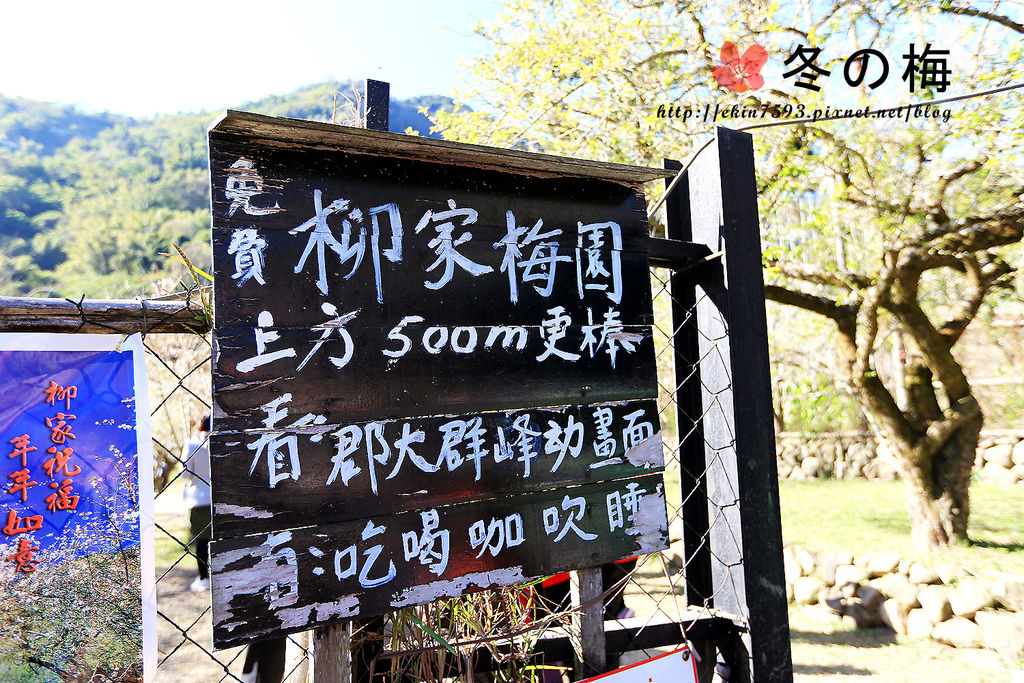 冬の梅
http://ekin7593.pixnet.net/blog
免費
柳家梅園
上方500m更棒
看:郡大群峰动畫面
有:吃喝咖吹睡
柳家祝福
年年如意